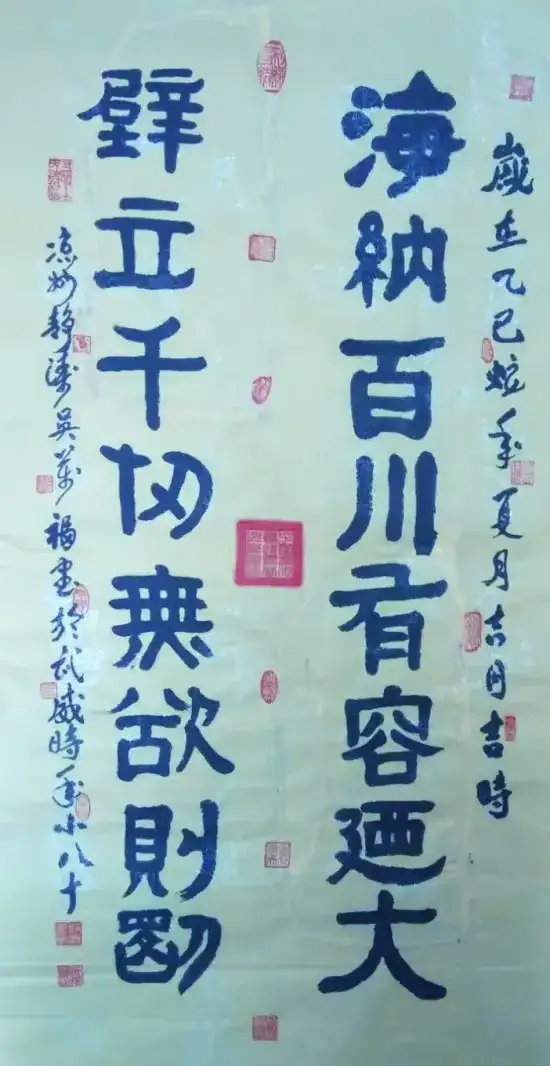 歲在乙巳蛇年夏月吉日吉時
海納百川有容廼大
壁立千仞無欲則剛
凉州静濤吴萬福書於武威時年小八十